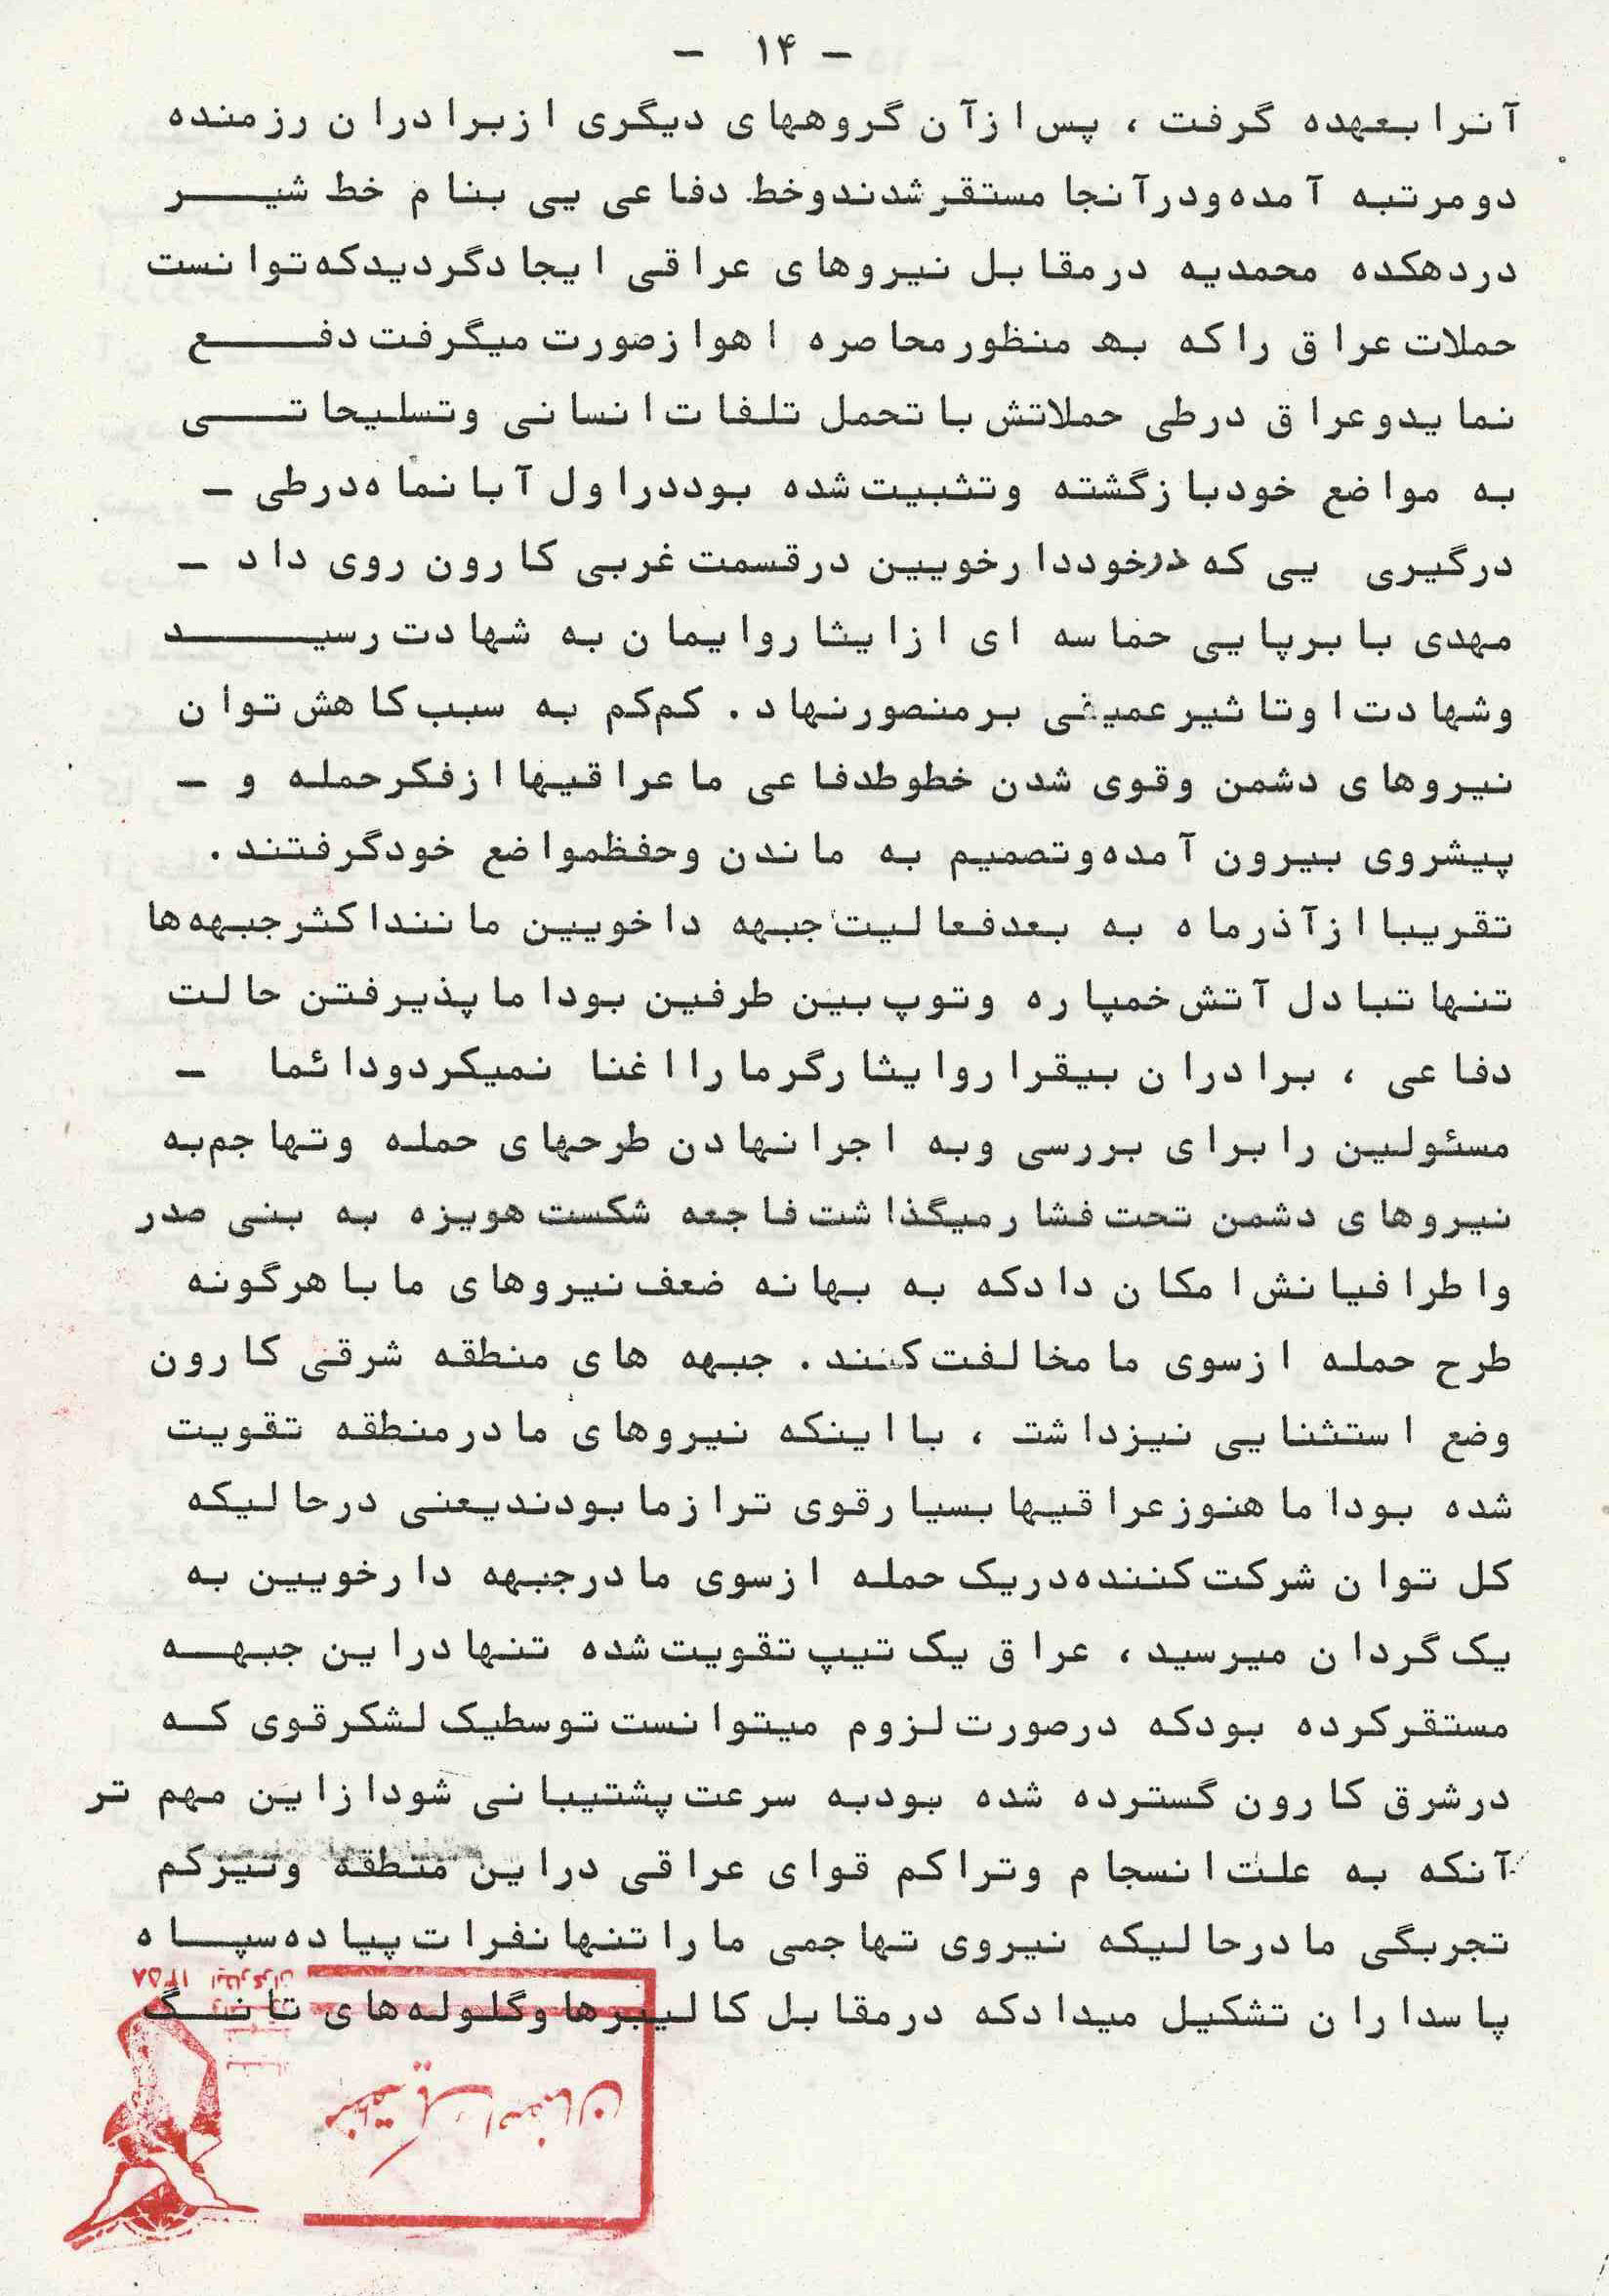 - ۱۴ -
آنرا بعهده گرفت ، پس از آن گروههای دیگری از برادران رزمنده
دومرتبه آمده ودرآنجا مستقر شدند وخط دفاعی یی بنام خط شیر
دردهکده محمدیه درمقابل نیروهای عراقی ایجاد گردید که توانست
حملات عراق را که به منظور محاصره اهواز صورت میگرفت دفع
نماید و عراق درطی حملاتش با تحمل تلفات انسانی وتسلیحاتی
به مواضع خود بازگشته وتثبیت شده بود دراول آبانماه درطی -
درگیری یی که درخود دارخویین درقسمت غربی کارون روی داد -
مهدی با برپایی حماسه ای از ایثار وایمان به شهادت رسید
وشهادت او تاثیر عمیقی برمنصور نهاد . کم‌کم به سبب کاهش توان
نیروهای دشمن وقوی شدن خطوط دفاعی ما عراقیها ازفکر حمله و -
پیشروی بیرون آمده وتصمیم به ماندن وحفظ مواضع خود گرفتند .
تقریبا از آذرماه به بعد فعالیت جبهه داخویین مانند اکثر جبهه‌ها
تنها تبادل آتش خمپاره وتوپ بین طرفین بود اما پذیرفتن حالت
دفاعی ، برادران بیقرار وایثارگر ما را اغنا نمیکرد ودائما -
مسئولین را برای بررسی وبه اجرا نهادن طرحهای حمله وتهاجم به
نیروهای دشمن تحت فشار میگذاشت فاجعه شکست هویزه به بنی صدر
واطرافیانش امکان داد که به بهانه ضعف نیروهای ما با هرگونه
طرح حمله ازسوی ما مخالفت کنند . جبهه های منطقه شرقی کارون
وضع استثنایی نیزداشت ، با اینکه نیروهای ما درمنطقه تقویت
شده بود اما هنوز عراقیها بسیار قوی تر از ما بودند یعنی درحالیکه
کل توان شرکت کننده دریک حمله ازسوی ما درجبهه دارخویین به
یک گردان میرسید ، عراق یک تیپ تقویت شده تنها دراین جبهه
مستقر کرده بود که درصورت لزوم میتوانست توسط یک لشکر قوی که
درشرق کارون گسترده شده بود به سرعت پشتیبانی شود از این مهم تر
آنکه به علت انسجام وتراکم قوای عراقی دراین منطقه ونیز کم
تجربگی ما درحالیکه نیروی تهاجمی ما را تنها نفرات پیاده سپاه
پاسداران تشکیل میداد که درمقابل کالیبرها وگلوله‌های تانگ
۱۳۵۸